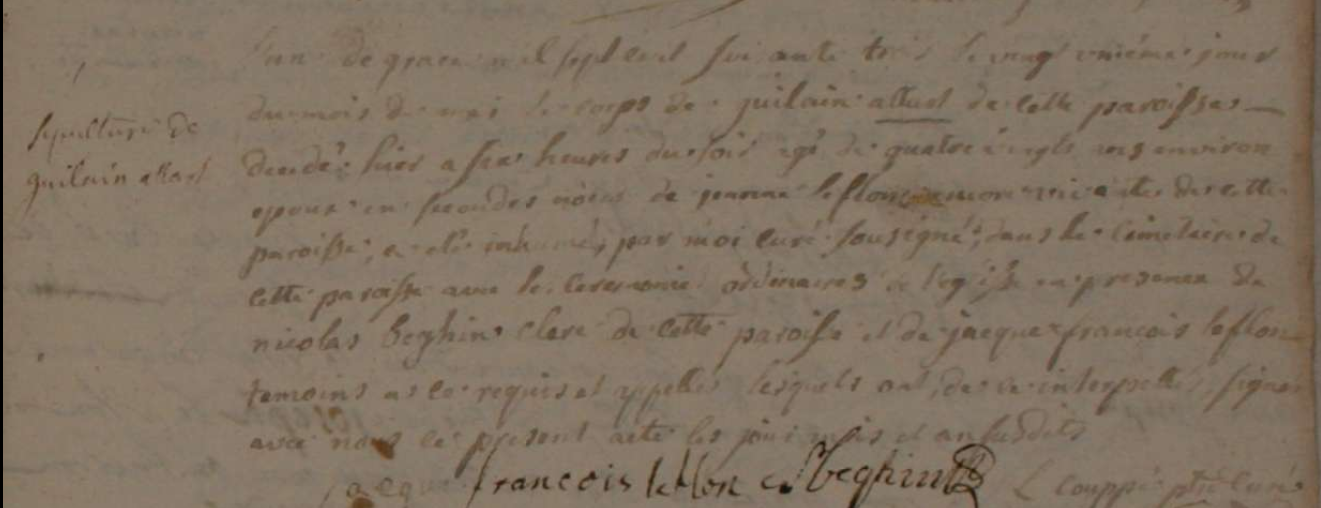 Sepulture de
guilain allart
l'an de grace mil sept cent soixante trois le vingt unième jour
du mois de mai le corps de guilain allart de cette paroisse
decedé hier a six heures du soir agé de quatre vingts ans environ
epoux en secondes noces de jeanne leflon vivante de cette
paroisse, a eté inhumé, par moi curé soussigné, dans le cimetaire de
cette paroisse avec les ceremonies ordinaires de l'eglise en presence de
nicolas beghin clerc de cette paroisse et de jacque francois leflon
temoins a ce requis et appellés lesquels ont, de ce interpellés, signé
avec nous ce present acte les jour mois et an susdits
jacque francois leflon Beghin Couppé ptre curé